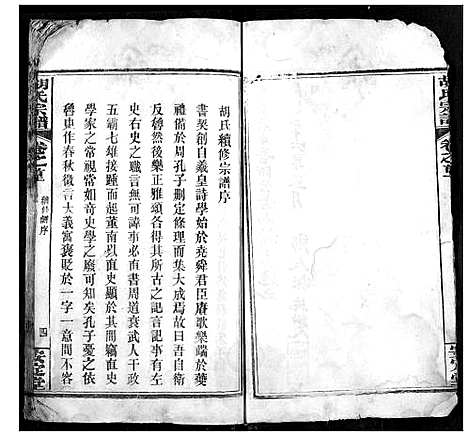 胡氏宗譜
卷之首
胡氏續修宗譜序
書契創自羲皇詩學始於堯舜君臣賡歌樂端於夔
禮備於周孔子刪定條理而集大成焉故曰吾自衛
反魯然後樂正雅頌各得其所古之記言記動即今
史右史之職言無可諱事必直書周道衰武人干政
五霸七雄接踵而起董南以直史顯於其間竊直史
學家之常視當如奇史學之廢可知矣孔子憂之依
魯史作春秋微言大義寓褒貶於一字一意間不容
胡氏宗譜
卷之首
續修譜序
四
安定堂